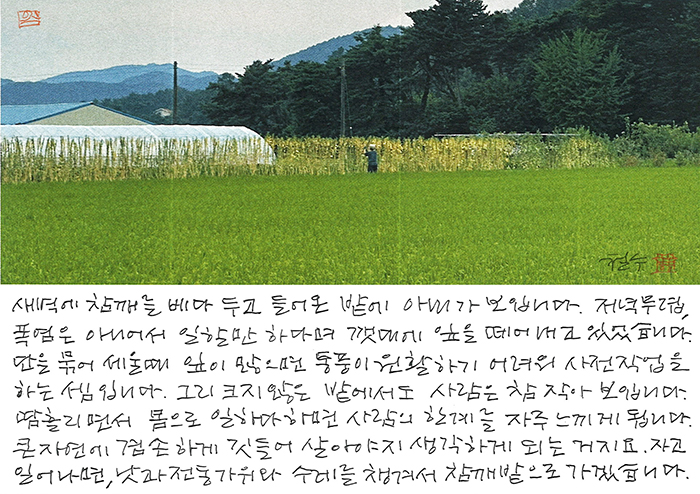 철수
새벽에 참깨를 베다 두고 들어온 밭에 아내가 보입니다. 저녁무렵,
폭염은 아니어서 일할만 하다며 깻대에 잎을 떼어내고 있었습니다.
단을 묶어 세울때 잎이 많으면 통풍이 원활하기 어려워 사전작업을
하는 셈입니다. 그리 크지않은 밭에서도 사람은 참 작아 보입니다.
땀흘리면서 몸으로 일하다하면 사람의 한계를 자주 느끼게 됩니다.
큰 자연에 겸손하게 깃들어 살아야지 생각하게 되는 거지요. 자고
일어나면, 낫과 전동가위와 수레를 챙겨서 참깨밭으로 가겠습니다.